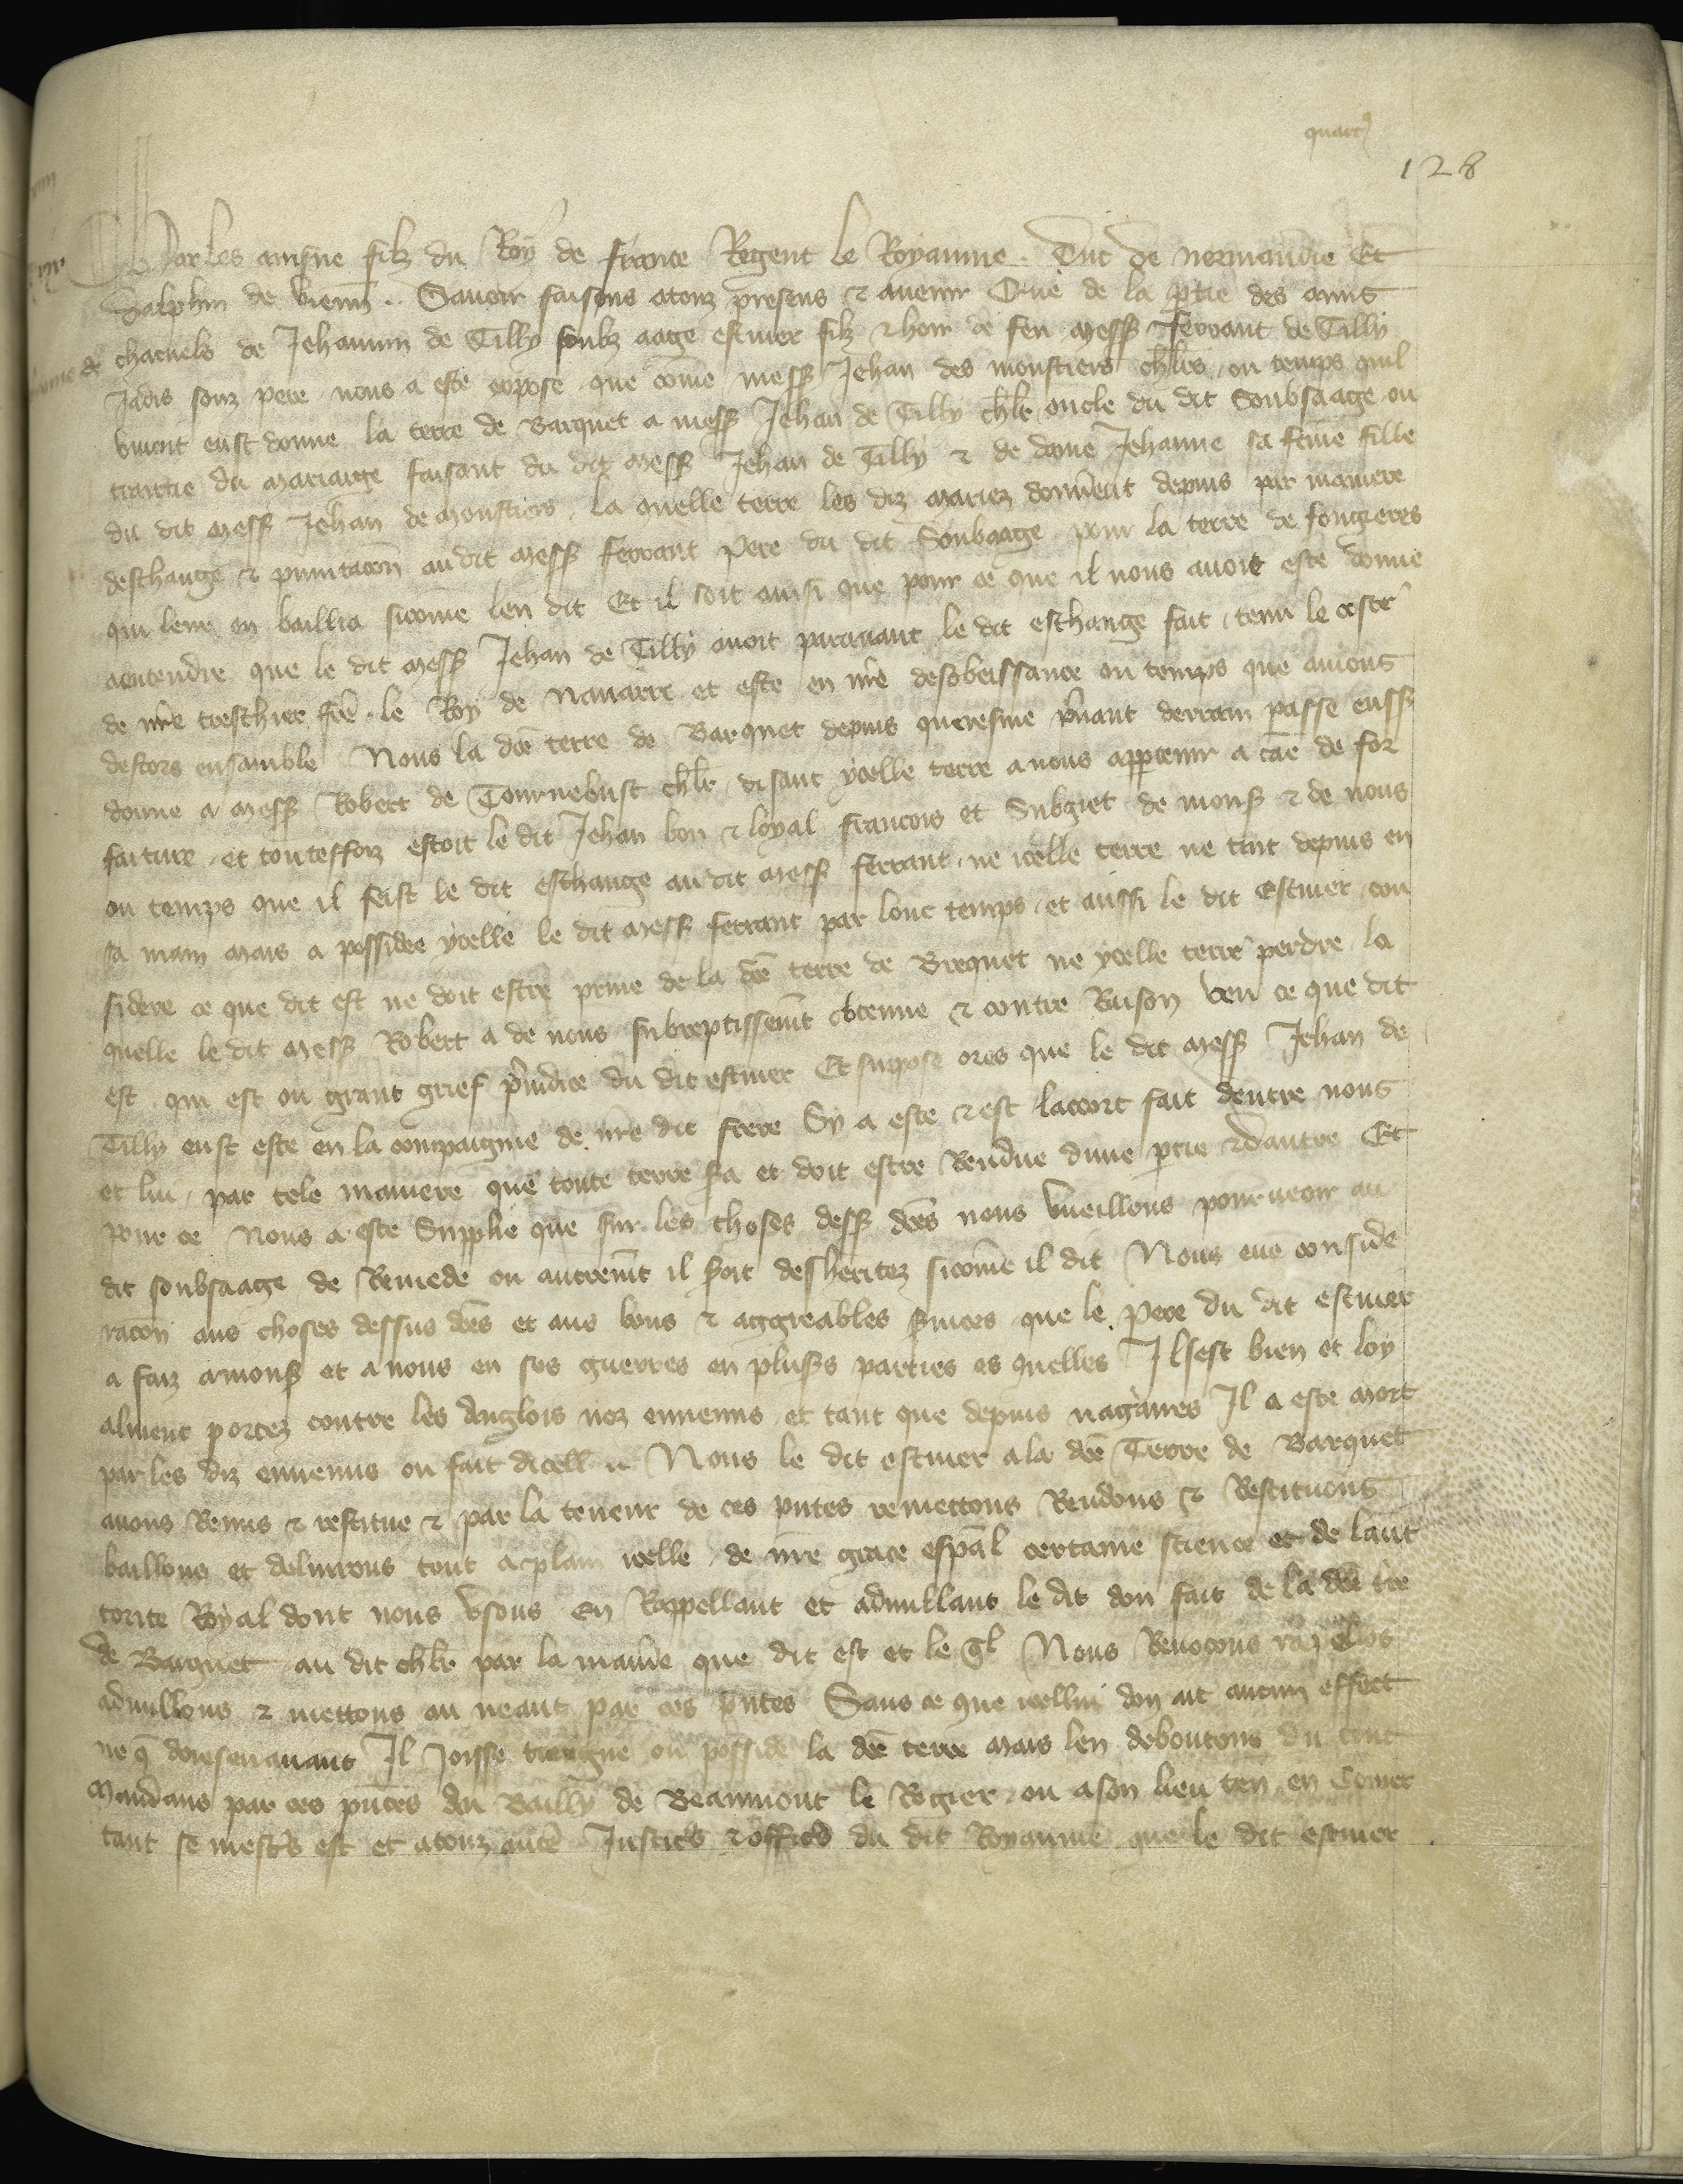 quart
128
Charles ainsne filz du Roy de france Regent le Royaume. Duc de normandie Et
dalphin de vienn. Savoir faisons atouz presens & avenir Que de la ptie des amis
charnels de Jehannin de Tilly soubz aage escuier filz & hoir de feu mess ferrant de Tilly
jadis sonz pere nous a este expose que come mess Jehan des moustiers chlr ou temps quil
vivoit eust donne la terre de Barquet a mess Jehan de Tilly chlr oncle du dit Soubsaage ou
traittie du mariaige faisant du dit mess Jehan de Tilly & de dame Jehanne sa feme fille
du dit mess Jehan de moustiers. la quelle terre les diz mariez donnerent depuis par maniere
deschange & pmutacon au dit mess ferrant pere du dit Soubzaage pour la terre de fougieres
qui leur en bailla sicome len dit Et il soit ainsi que pour ce que il nous avoit este donne
aentendre que le dit mess Jehan de Tilly avoit paravant le dit eschange fait. tenu le coste
de nre treschier fre. le Roy de navarre et este en nre desobeissance ou temps que avions
descors ensamble Nous la dce terre de Barquet depuis quaresme prenant derrain passe euss
donne a mess Robert de Tournebust chlr disant ycelle terre a nous apptenir a cae de for
faiture. et toutesfoiz estoit le dit Jehan bon & loyal francois et Subgiet de mons & de nous
ou temps que il feist le dit eschange au dit mess ferrant. ne icelle terre ne tint depuis en
sa main mais a possidee ycelle le dit mess ferrant par lonc temps. et aussi le dit Escuier con
sidere ce que dit est ne doit estre prive de la dce terre de Brequet ne ycelle terre perdre la
quelle le dit mess Robert a de nous subreptissemt obtenue & contre Raison veu ce que dit
est. qui est ou grant grief priudice du dit escuier Et supose ores que le dit mess Jehan de
Tilly eust este en la compaignie de nre dit frere Sy a este & est laccort fait dentre nous
et lui. par tele maniere que toute terre sa et doit estre Rendue dune ptie & dautre Et
pour ce Nous a este Supplie que sur les choses dess dces nous vueillons pourveoir au
dit soubsaage de Remede ou autremt il seroit desheritez sicome il dit Nous eue conside
racon aus choses dessus dces et aus bons & aggreables svices que le pere du dit escuier
a faiz a mons et a nous en ses guerres en pluss parties es quelles Il sest bien et loy
alment portez contre les Anglois noz ennemis. et tant que depuis nagaires Il a este mort
par les diz ennemis ou fait dicell Nous le dit escuier a la dce Terre de Barquet
avons Remis & restitue & par la teneur de ces pntes remettons Rendons & Restituons
baillons et delivrons tout a plain icelle. de nre grace espal certaine science et de lauc
torite Royal dont nous vsons En Rappellant et adnullant le dit don fait de la dce tre
de Barquet. au dit chlr par la manie que dit est et le ql Nous Revocons
adnullons & mettons au neant par ces pntes Sans ce que icellui don ait aucun effect
ne q doresenavant Il Joisse tiengne ou posside la dce terre mais len deboutons du tout
Mandans par ces pntes au Bailly de Beaumont le Rogier. ou a son lieu ten en Comet
tant se mests est et a touz autr Justics & offics du dit Royaume que le dit escuier